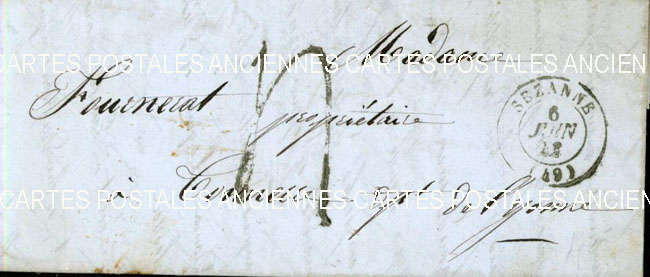 Madame
Fournerat
propriétaire
à Tonnerre dpt de l'Yonne
SEZANNE
6
JUIN
(49)
CARTES POSTALES ANCIENNES CARTES POSTALES ANCIENNES
CARTES POSTALES ANCIENNES CARTES POSTALES ANCIEN